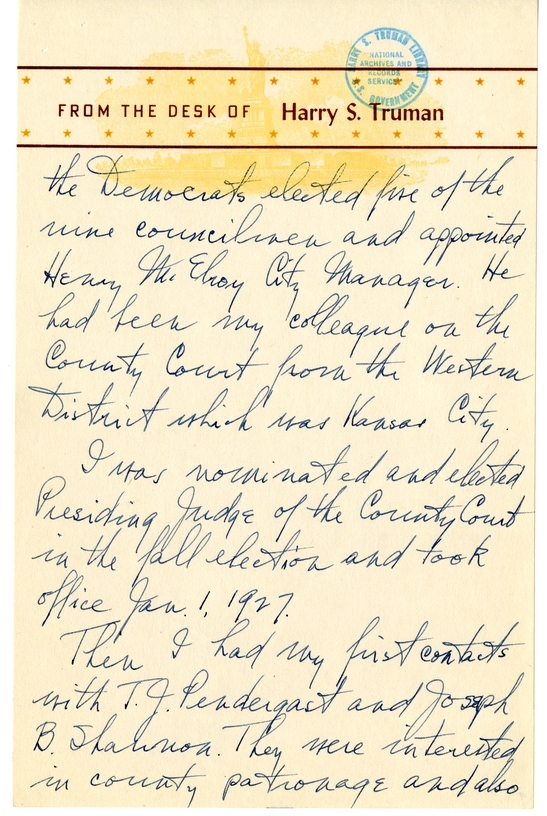 HARRY S. TRUMAN LIBRARY
NATIONAL
ARCHIVES AND
RECORDS
SERVICE
U.S. GOVERNMENT
FROM THE DESK OF Harry S. Truman
the Democrats elected five of the
nine councilmen and appointed
Henry McElroy City Manager. He
had been my colleague on the
County Court from the Western
District which was Kansas City.
I was nominated and elected
Presiding Judge of the County Court
in the fall election and took
office Jan. 1, 1927.
Then I had my first contacts
with T.J. Pendergast and Joseph
B. Shannon. They were interested
in county patronage and also